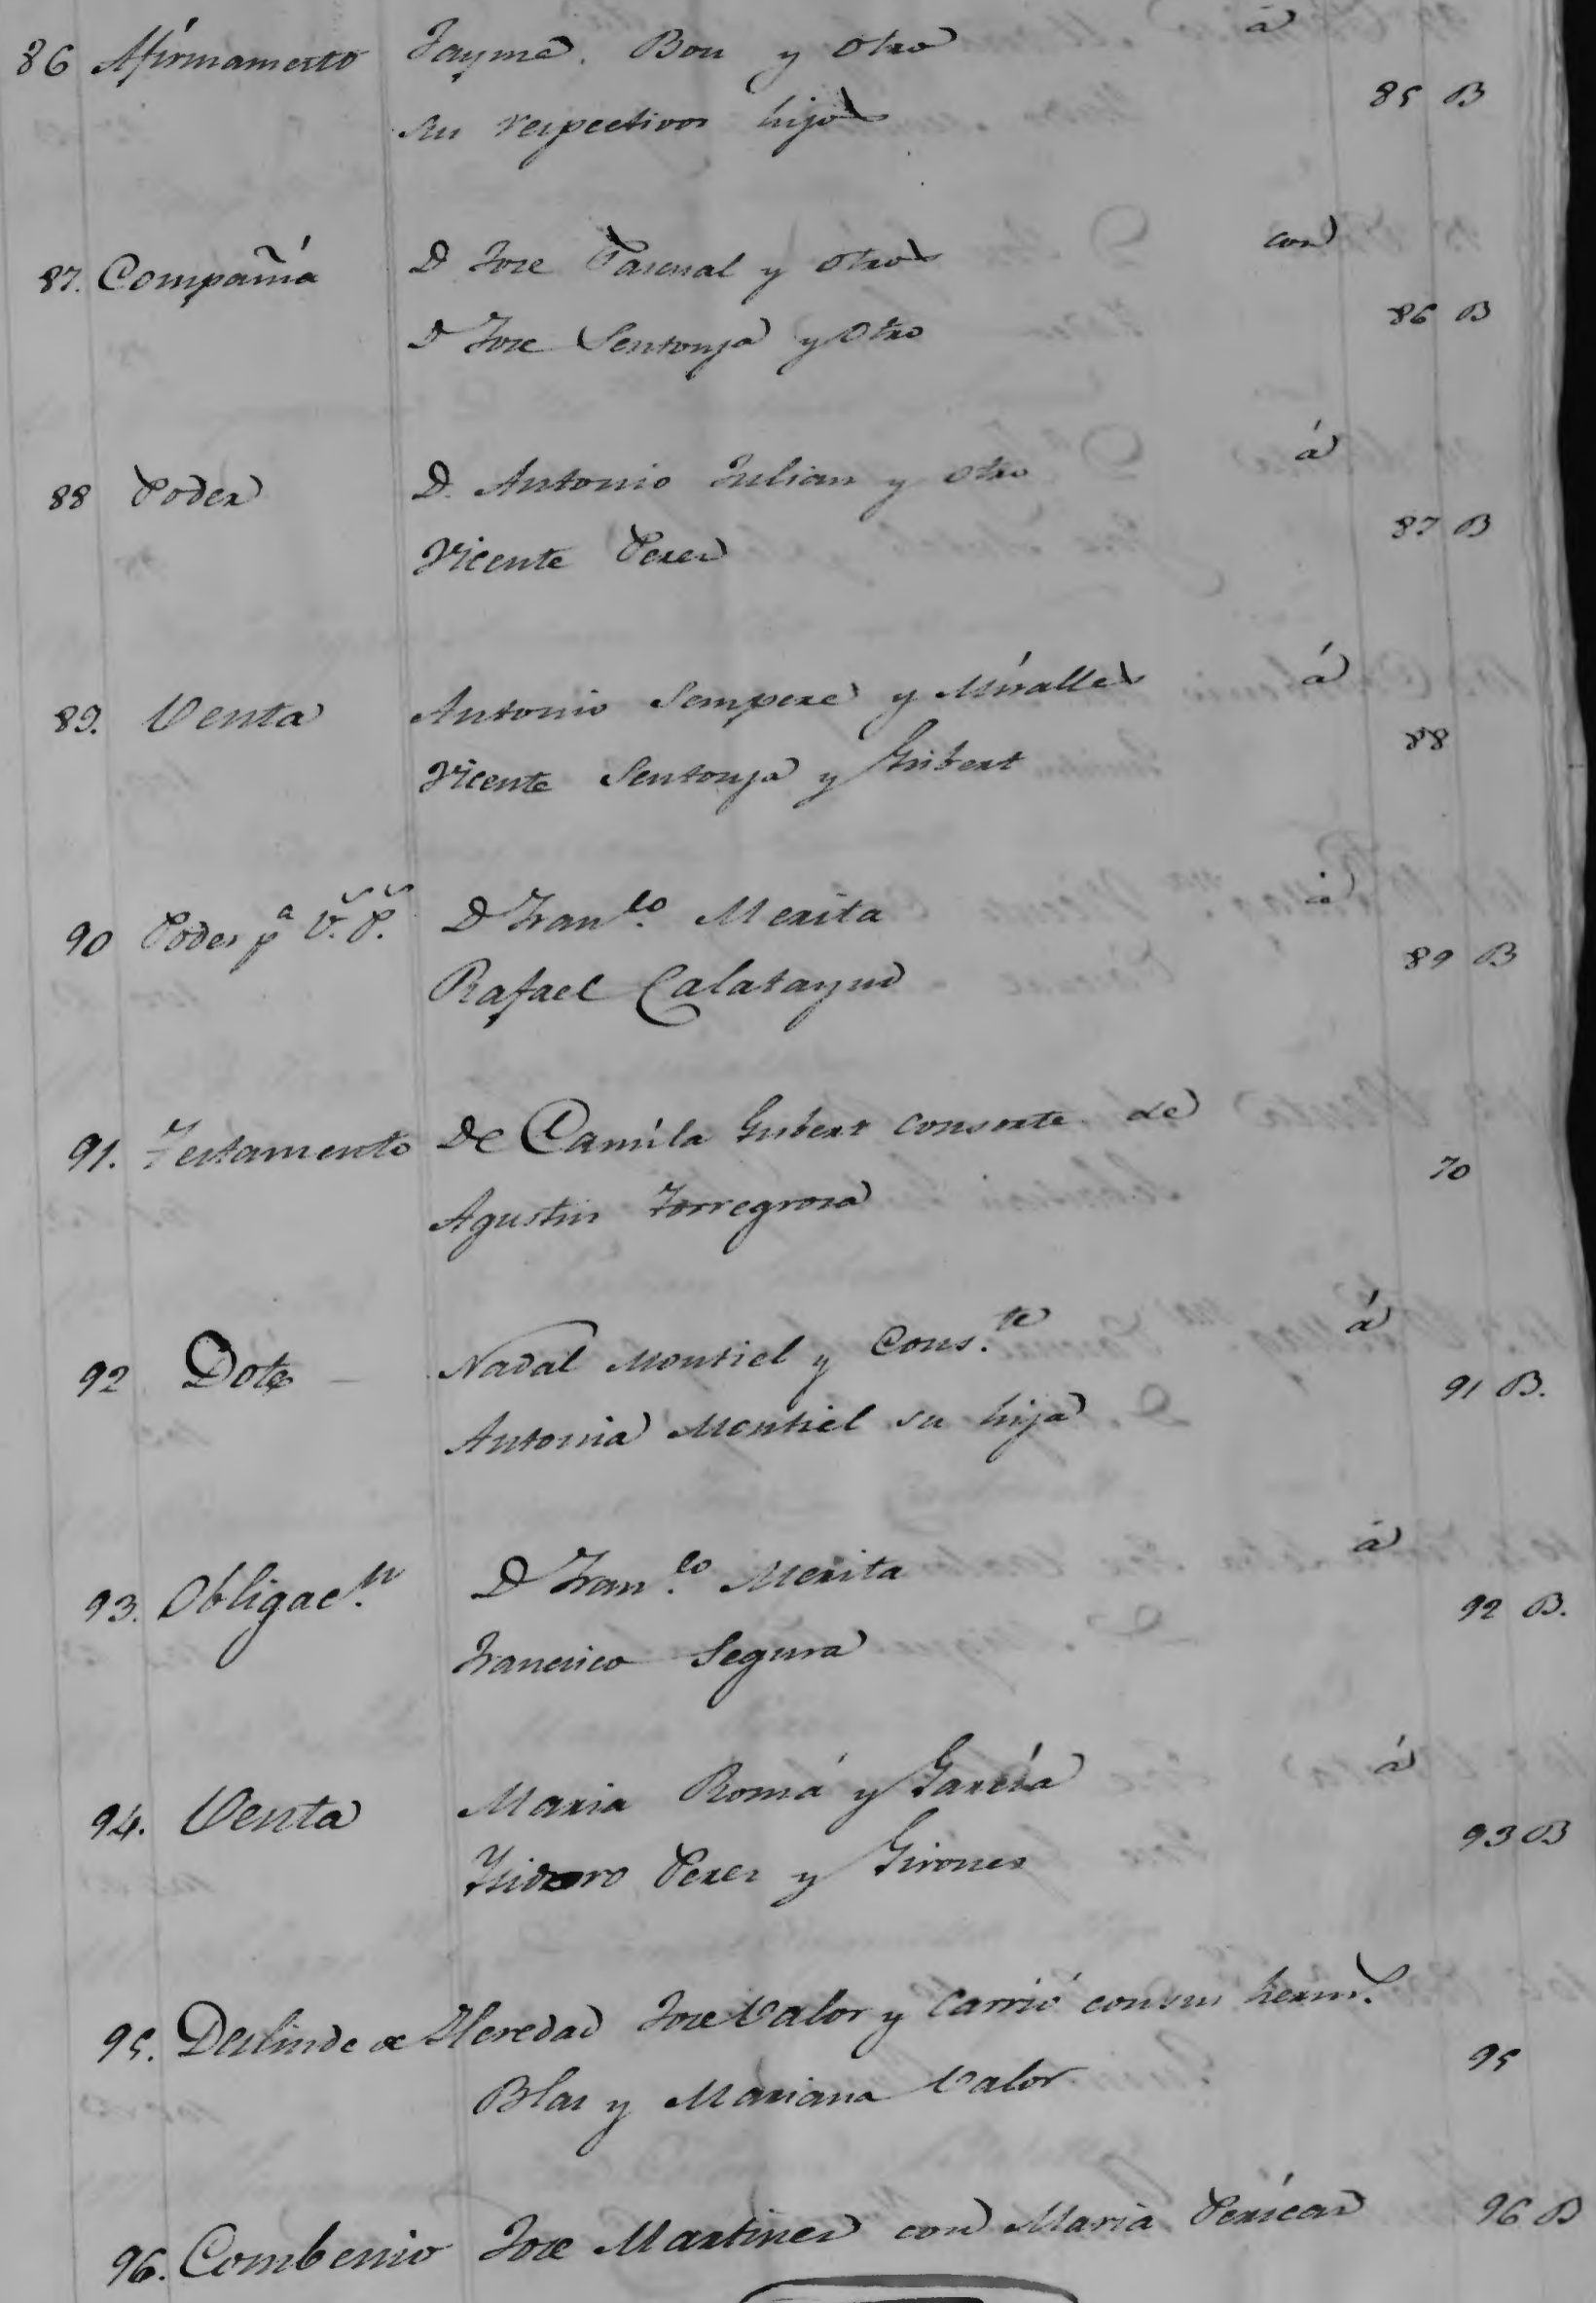 86 Afirmamento Jayme Bou y otro á
sus respectivos hijos 85 B
87. Compañia D Jose Pascual y otros con
D Jose Sentonja y Otro 86 B
88 Poder D. Antonio Julian y otro á
Vicente Perez 87 B
89. Venta Antonio Sempere y Miralles á
Vicente Sentonja y Gisbert 88
90 Poder p.a V.s P.s D Fran.co Merita á
Rafael Calatayud 89 B
91. Testamento De Camila Gisbert consorte de
Agustin Torregrosa 70
92 Dote Nadal Montiel y Cons.te á
Antonia Montiel su hija 91 B.
93. Obligac.n D Fran.co Merita á
Francisco Segura 92 B.
94. Venta Maria Romá y García á
Ysidoro Perez y Girones 93 B
95. Deslinde de Heredad Jose Valor y Carrió con sus herm.s
Blas y Mariana Valor 95
96. Combenio Jose Martinez con Maria Pericas 96 B